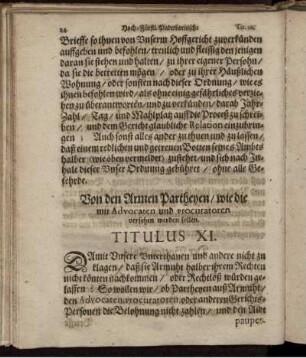 24 Hoch-Fürstl. Paderbornische Tit. 10.
Brieffe so ihnen von Unserm Hoffgericht zuverkünden
auffgeben und befohlen/ treulich und fleissig den jenigen
daran sie stehen und halten/ zu ihrer eigener Persohn/
da sie die betretten mögen / oder zu ihrer Häußlichen
Wohnung / oder sonsten nach dieser Ordnung / wie es
ihnen befohlen wird/ als ohne einig gefährliches verziehen
zu überantworten/ und zu verkünden/ darab Jahr-
Zahl/ Tag/ und Mahlplatz auff die Proceß zu schrei-
ben/ und dem Gericht glaubliche Relation einzubrin-
gen : Auch sonst alles ander zu thuen und zu lassen/
daß einem redlichen und getreuen Botten seines Ambts
halber (wie oben vermeldet) zustehet/ und sich nach In-
halt dieser Unser Ordnung gebühret / ohne alle Ge-
fehrde.
Von den Armen Partheyen/ wie die
mit Advocaten und procuratoren
versehen werden sollen.
TITULUS XI.
DAmit Unsere Unterthanen und andere nicht zu
klagen/ daß sie Armuht halber ihrem Rechten
nicht können nachkommen / oder Rechtloß würden ge-
lassen : So wollen wir / ob Partheyen auß Armuht/
den Advocaten, procuratoren oder anderen Gerichts-
Personen die Belohnung nicht zahlen/ und den Aidt
paupertatis